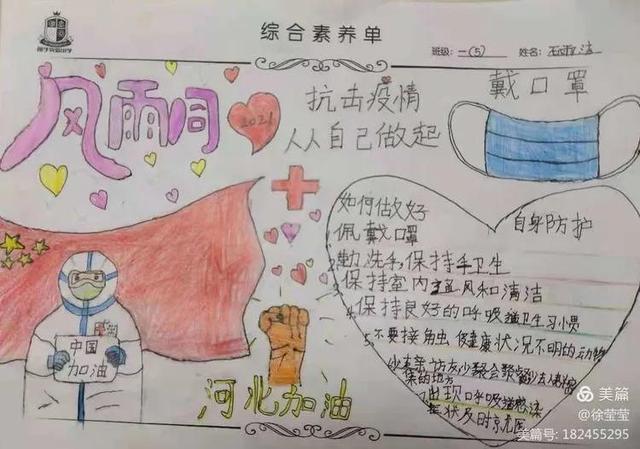 综合素养单
班级: 一(5) 姓名:
风雨同
2021
抗击疫情
从自己做起
戴口罩
如何做好
自身防护
佩戴口罩
勤洗手,保持手卫生
3保持室内通风和清洁
4.保持良好的呼吸道卫生习惯
5.不要接触 健康状况不明的动物
集的地方
出现呼吸道感染
症状及时
中国
加油
河北加油
美篇
@徐莹莹
美篇号: 182455295